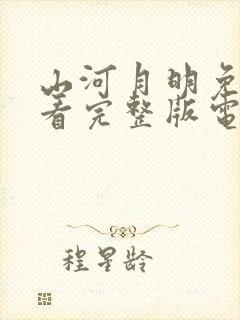 山河月明免
看完整版電
程星龄